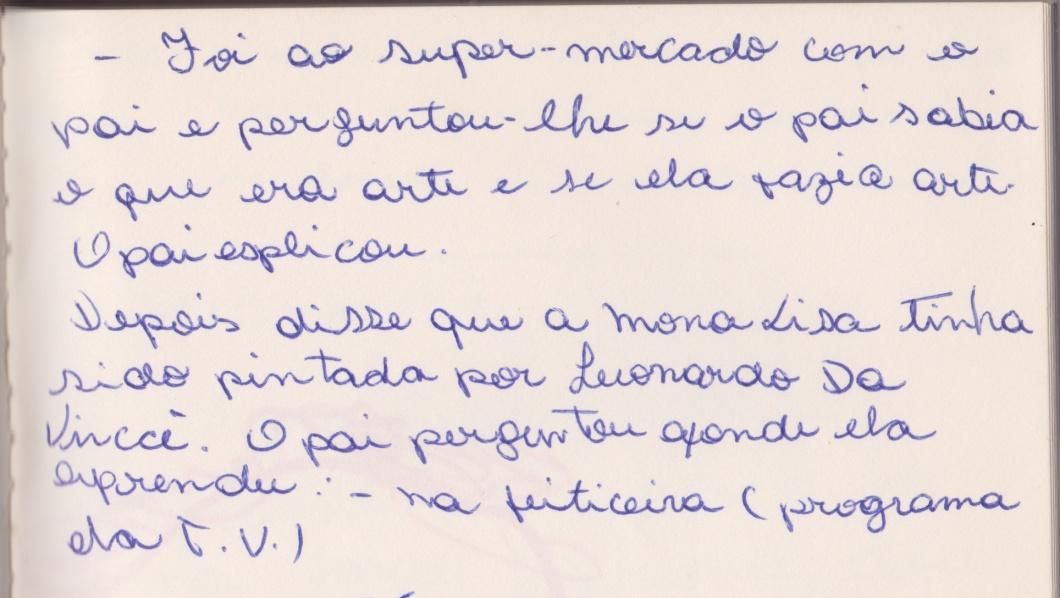 - Foi ao super-mercado com o
pai e perguntou-lhe se o pai sabia
o que era arte e se ela fazia arte.
O pai esplicou.
Depois disse que a mona Lisa tinha
sido pintada por Leonardo Da
Vincci. O pai perguntou aonde ela
aprendeu: - na feiticeira (programa
da T.V.)